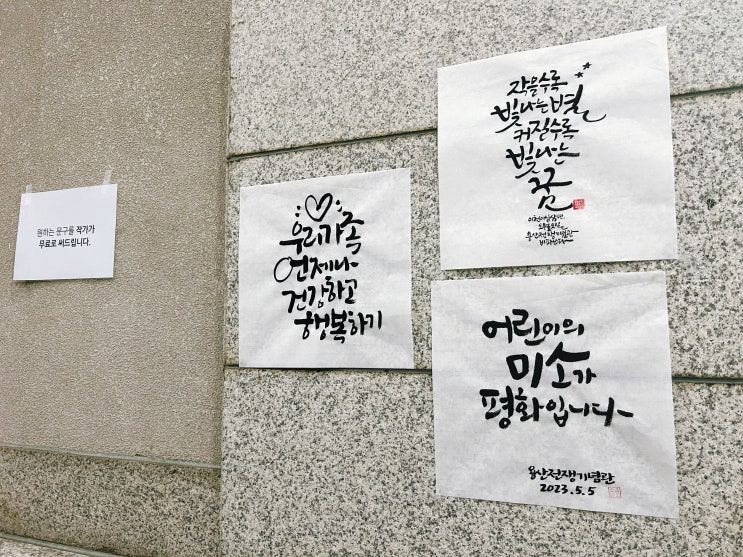 원하는 문구를 작가가
무료로 써드립니다.
우리가족
언제나
건강하고
행복하기
작을수록
빛나는 별
커질수록
빛나는
꿈
이천이십삼년
오월오일
용산전쟁기념관
어린이의
미소가
평화입니다
용산전쟁기념관
2023.5.5